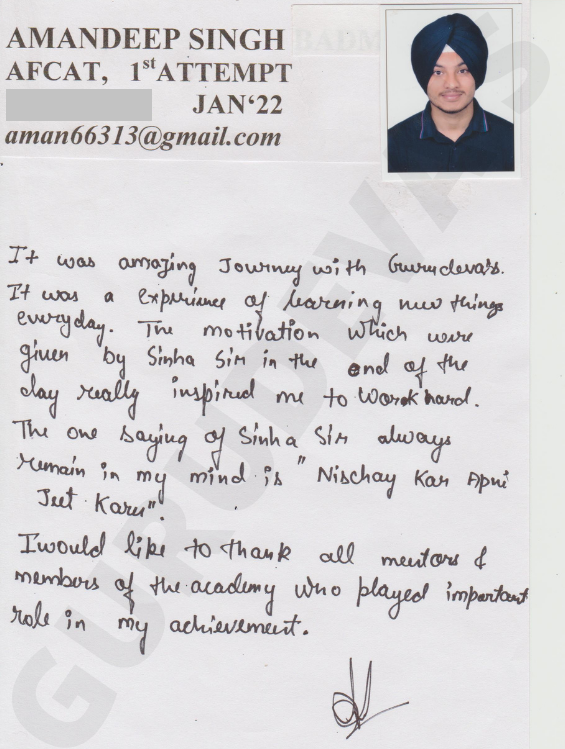 AMANDEEP SINGH
AFCAT, 1st ATTEMPT
JAN‘22
aman66313@gmail.com
It was amazing Journey with Gurudevas.
It was a experience of learning new things
everyday. The motivation which were
given by Sinha Sir in the end of the
day really inspired me to work hard.
The one saying of Sinha Sir always
remain in my mind is "Nischay Kar Apni
Jeet Karu".
I would like to thank all mentors &
members of the academy who played important
role in my achievement.
GURUDEVAS